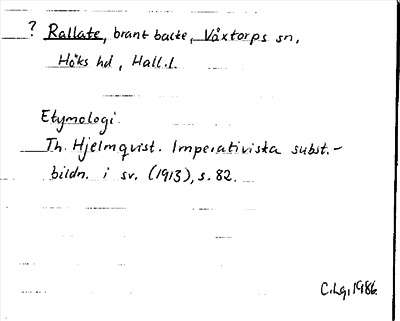 ? Rallate, brant backe, Våxtorps sn,
Höks hd, Hall.l.
Etymologi.
Th. Hjelmqvist. Imperativiska subst.-
bildn. i sv. (1913), s. 82.
C.Lg, 1986.